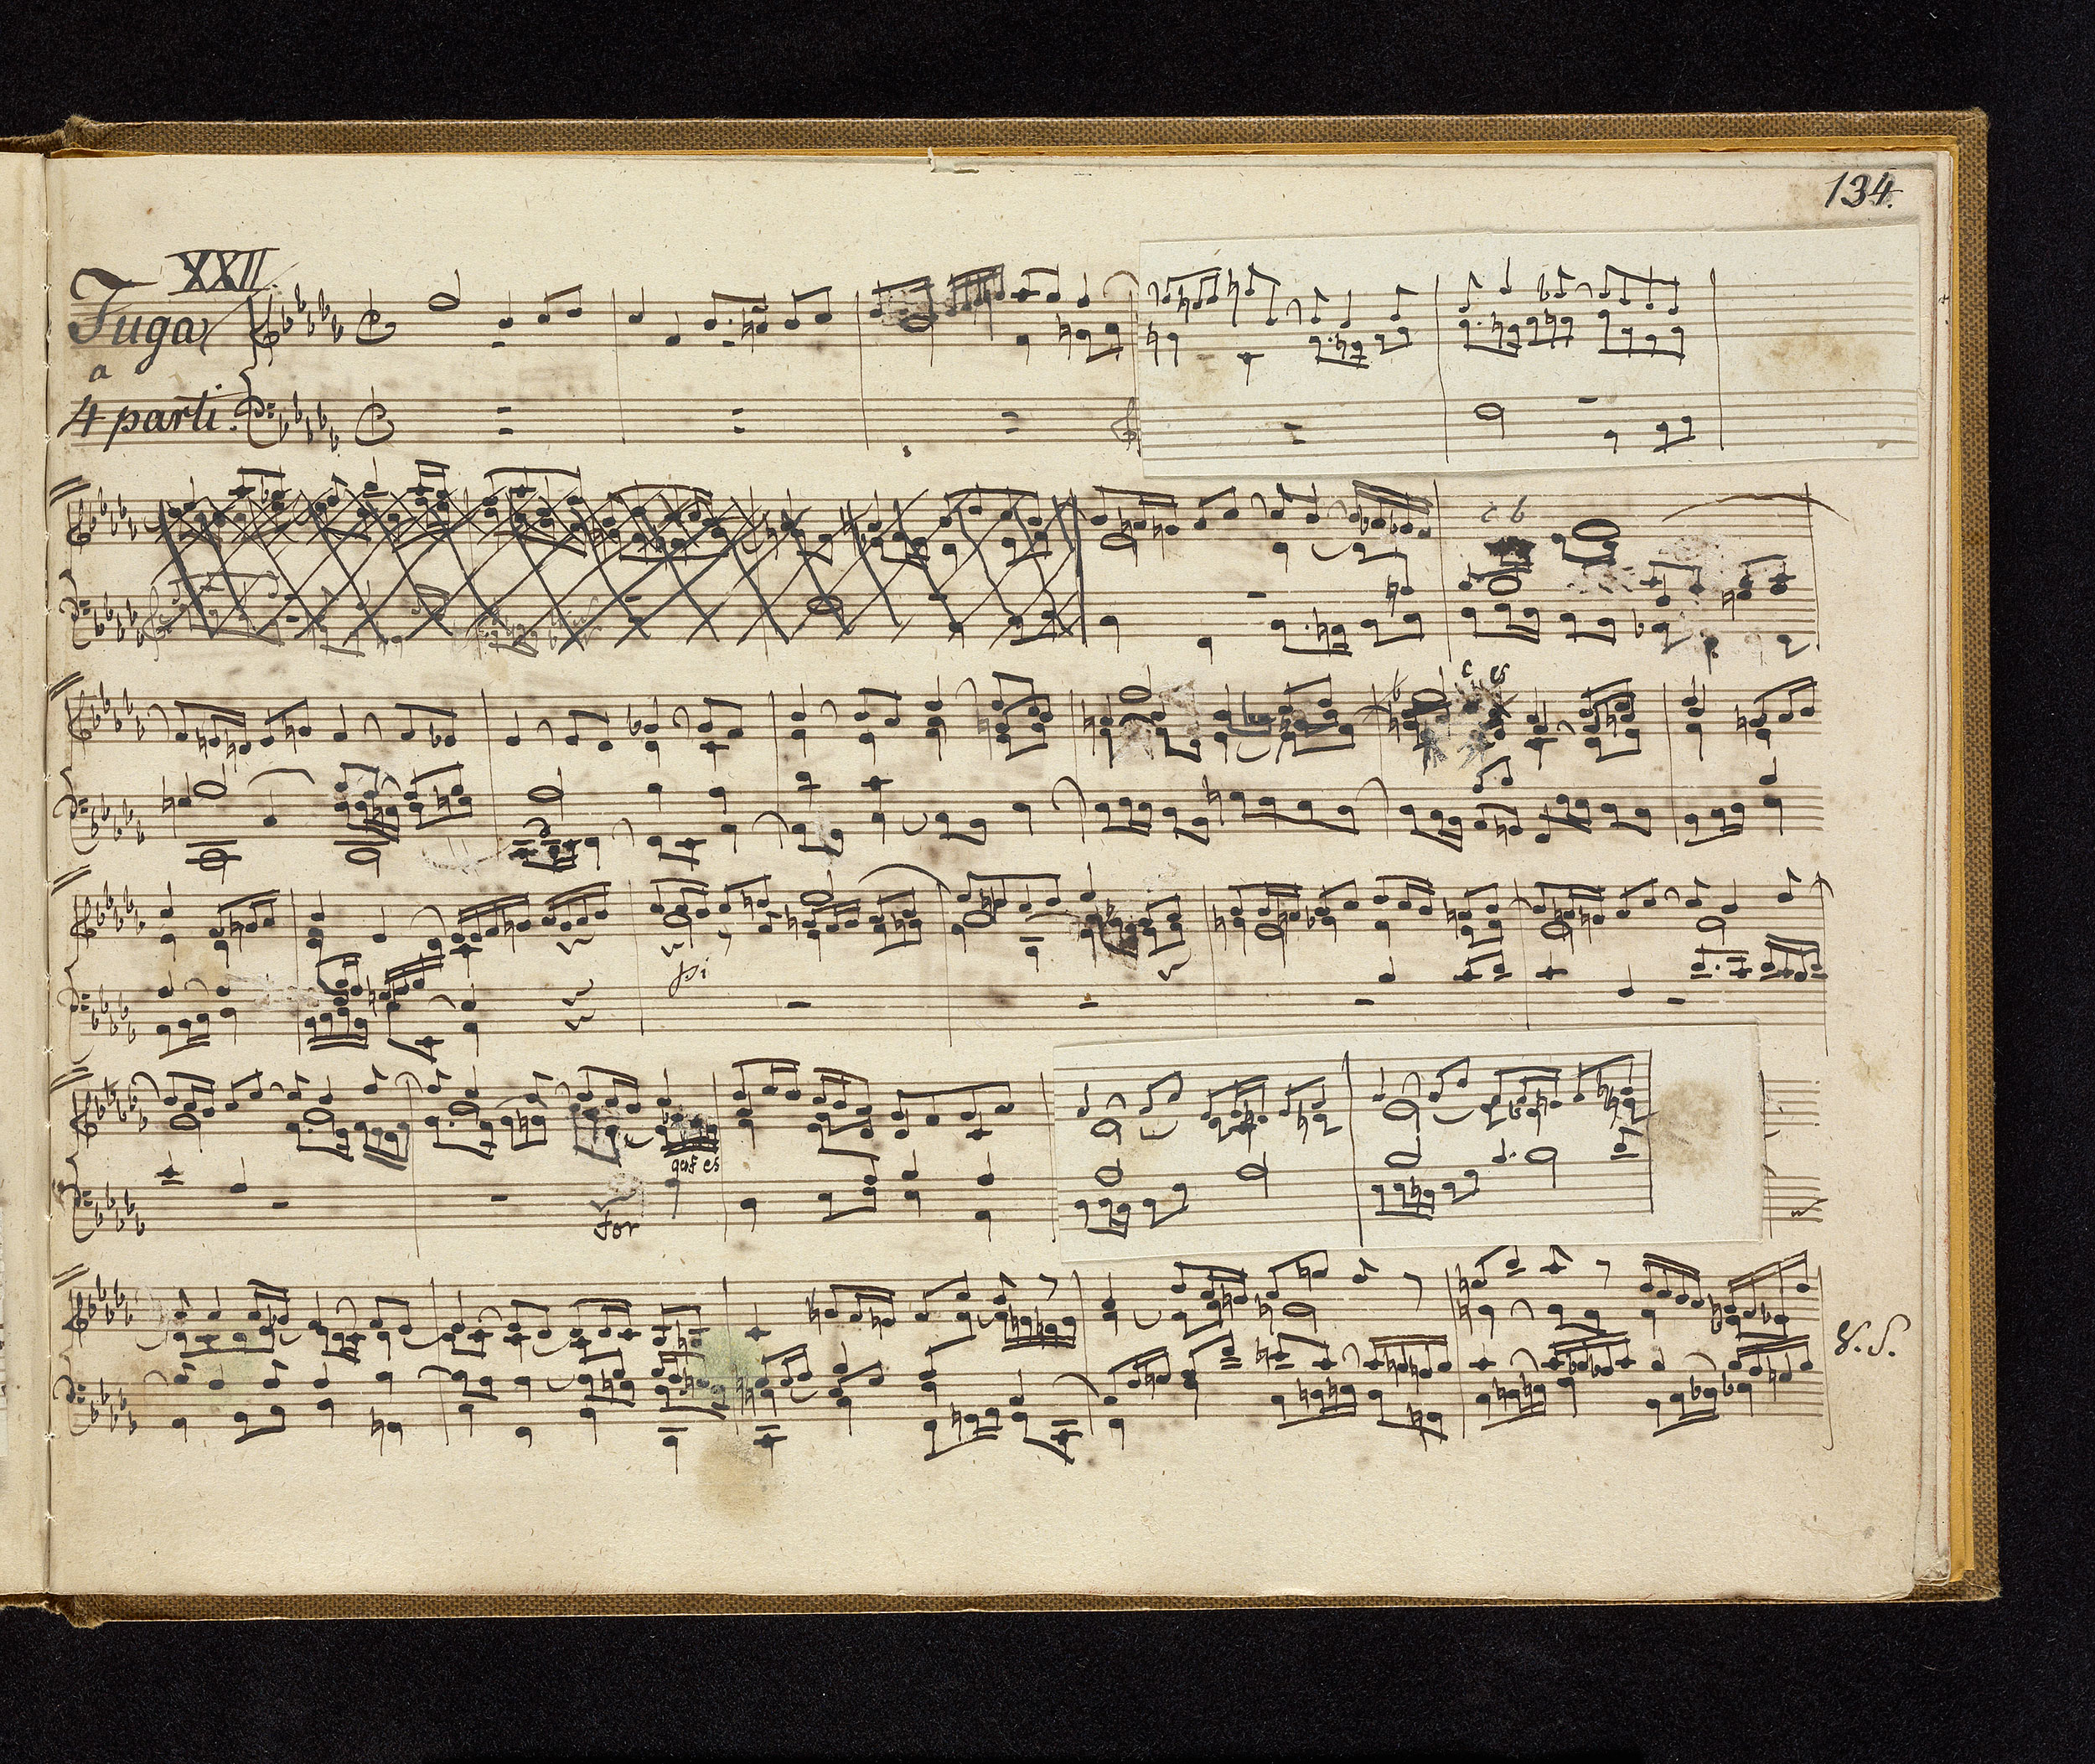 134.
XXII.
Fuga
a
4 parti.
c b
c es
pi
gesf es
for
V. S.